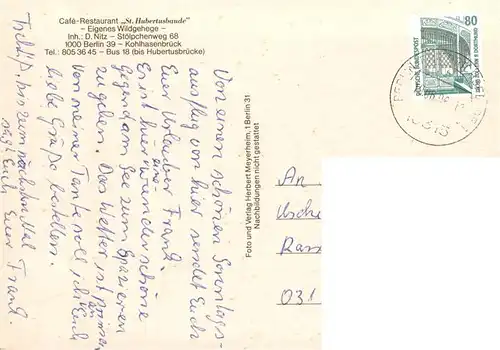 Café-Restaurant „St. Hubertusbaude"
– Eigenes Wildgehege –
Inh.: D. Nitz – Stölpchenweg 68
1000 Berlin 39 – Kohlhasenbrück
Tel.: 805 36 45 – Bus 18 (bis Hubertusbrücke)
80
DEUTSCHE BUNDESPOST
Von einen schönen Sonntags-
ausflug von hier sendet Euch
Euer Urlauber Frank.
Es ist hier eine wunderschöne
Gegend am See zum Spazieren
zu gehen. Das Wetter ist prima
Von meiner Tante soll ich Euch
liebe Grüße bestellen.
Tschüß, bis zum nächsten Mal
sagt Euch Euer Frank.
Foto und Verlag Herbert Meyerheim, 1 Berlin 31
Nachbildungen nicht gestattet
An
031